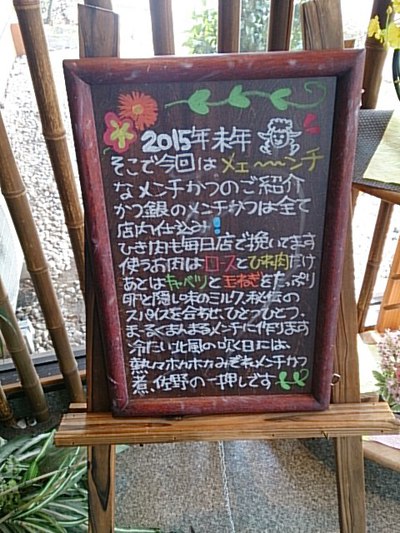 2015年未年
そこで今回はメェ〜〜ンチ
なメンチかつのご紹介
かつ銀のメンチかつは全て
店内仕込み!
ひき肉も毎日店で挽いてます
使うお肉はロースとひれ肉だけ
あとはキャベツと玉ねぎをたっぷり
卵と隠し味のミルク、秘伝の
スパイスを合わせ、ひとつひとつ、
まーるくまんまるメンチに作ります
冷たい北風の吹く日には、
熱々ホカホカみぞれメンチかつ
煮、佐野の一押しです